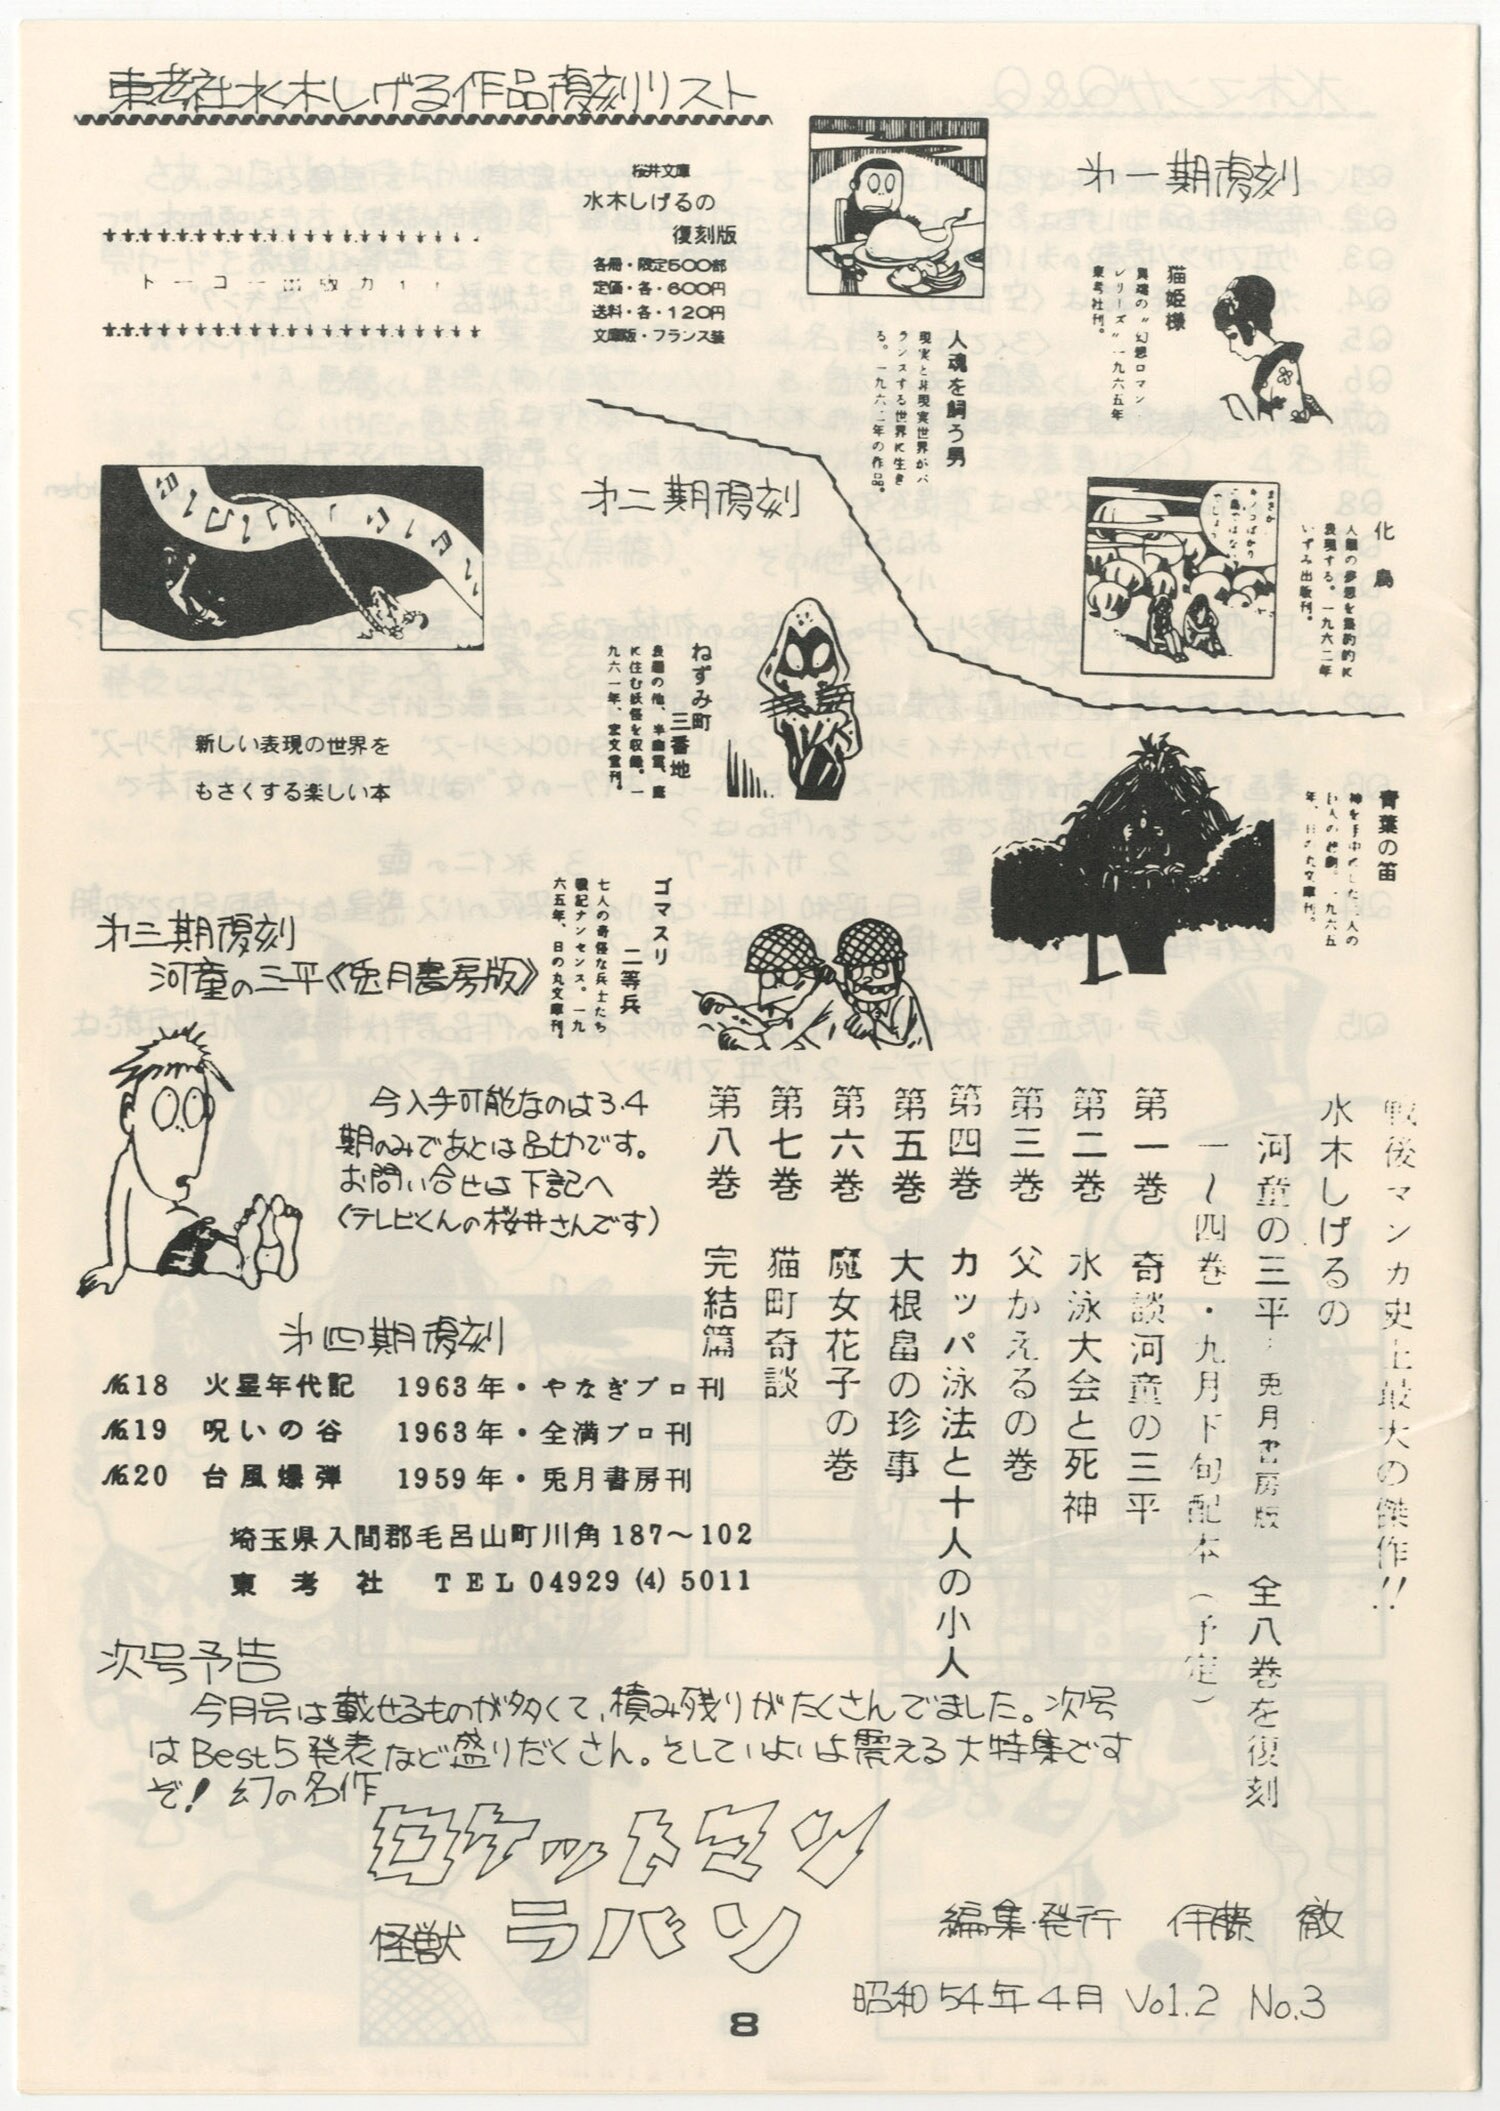 東考社水木しげる作品復刻リスト
桜井文庫
水木しげるの
復刻版
各冊・限定500部
定価・各・600円
送料・各・120円
文庫版・フランス装
オ一期復刻
猫姫様
異魂の"幻想ロマン
シリーズ"一九六五年
東考社刊。
人魂を飼う男
現実と非現実世界がバ
ランスする世界に生き
る。一九六二年の作品。
化鳥
人類の夢想を集約的に
表現する。一九六二年
いずみ出版刊。
青葉の笛
オ二期復刻
ねずみ町
三番地
表題の他、半幽霊、庭
に住む妖怪を収録。一
九六一年、宏文堂刊。
新しい表現の世界を
もさくする楽しい本
ゴマスリ
二等兵
七人の奇怪な兵士たち
戦記ナンセンス。一九
六五年、日の丸文庫刊。
オ三期復刻
河童の三平《兎月書房版》
今入手可能なのは3.4
期のみであとは品切です。
お問い合せは下記へ
(テレビくんの桜井さんです)
戦後マンガ史上最大の傑作!!
水木しげるの
河童の三平 兎月書房版 全八巻を復刻
一〜四巻・九月下旬配本(予定)
第一巻 奇談河童の三平
第二巻 水泳大会と死神
第三巻 父かえるの巻
第四巻 カッパ泳法と十人の小人
第五巻 大根畠の珍事
第六巻 魔女花子の巻
第七巻 猫町奇談
第八巻 完結篇
オ四期復刻
№18 火星年代記 1963年・やなぎプロ刊
№19 呪いの谷 1963年・全満プロ刊
№20 台風爆弾 1959年・兎月書房刊
埼玉県入間郡毛呂山町川角187〜102
東考社 TEL04929(4)5011
次号予告
今月号は載せるものが多くて、積み残りがたくさんでました。次号
はBest5発表など盛りだくさん。そしていよいよ震える大特集です
ぞ! 幻の名作
ロケットマン
怪獣 ラバン
編集・発行 伊藤 徹
昭和54年4月 Vol.2 No.3
8